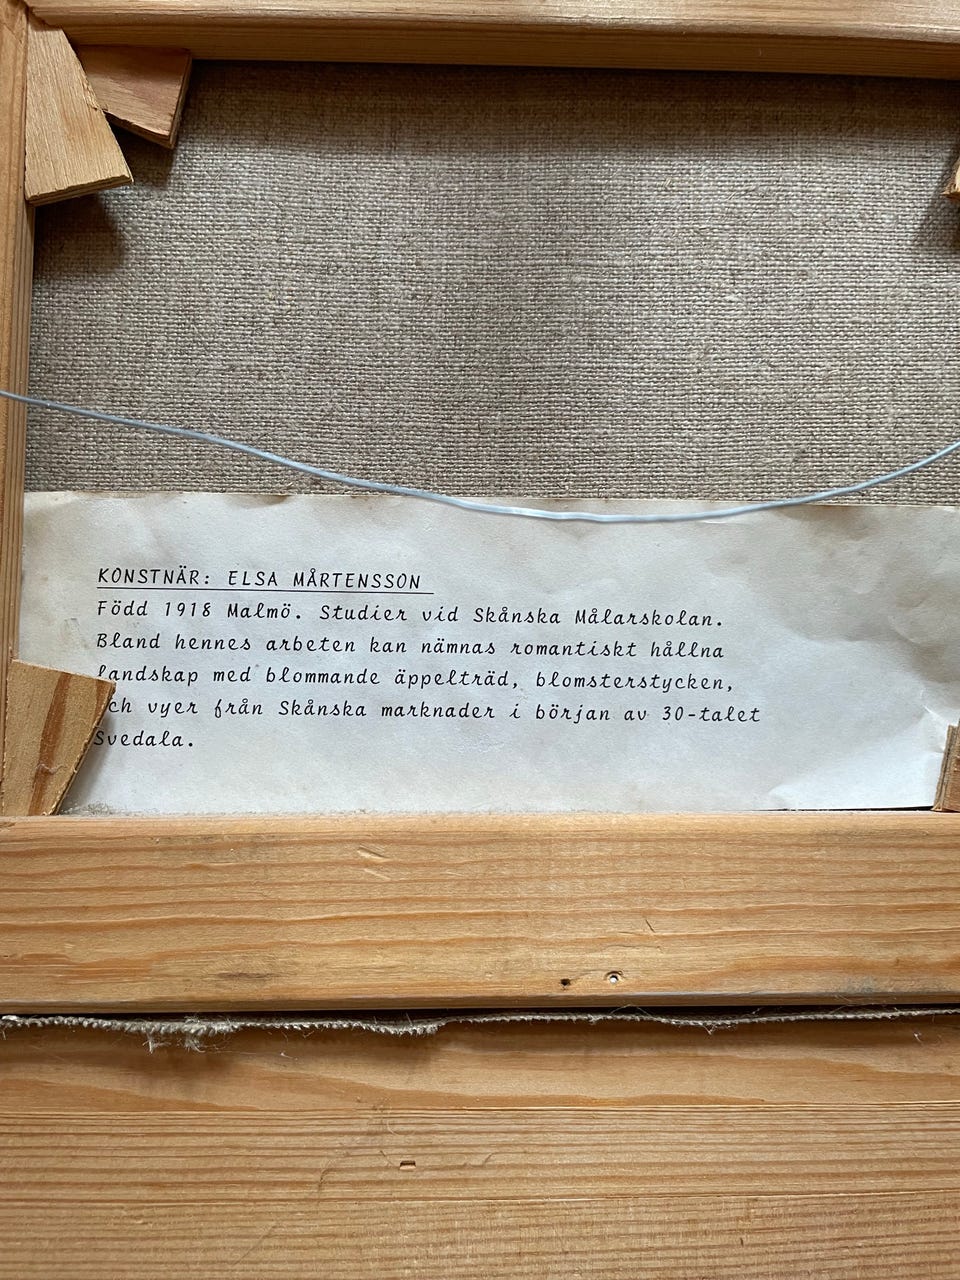 KONSTNÄR: ELSA MÅRTENSSON
Född 1918 Malmö. Studier vid Skånska Målarskolan.
Bland hennes arbeten kan nämnas romantiskt hållna
landskap med blommande äppelträd, blomsterstycken,
och vyer från Skånska marknader i början av 30-talet
Svedala.